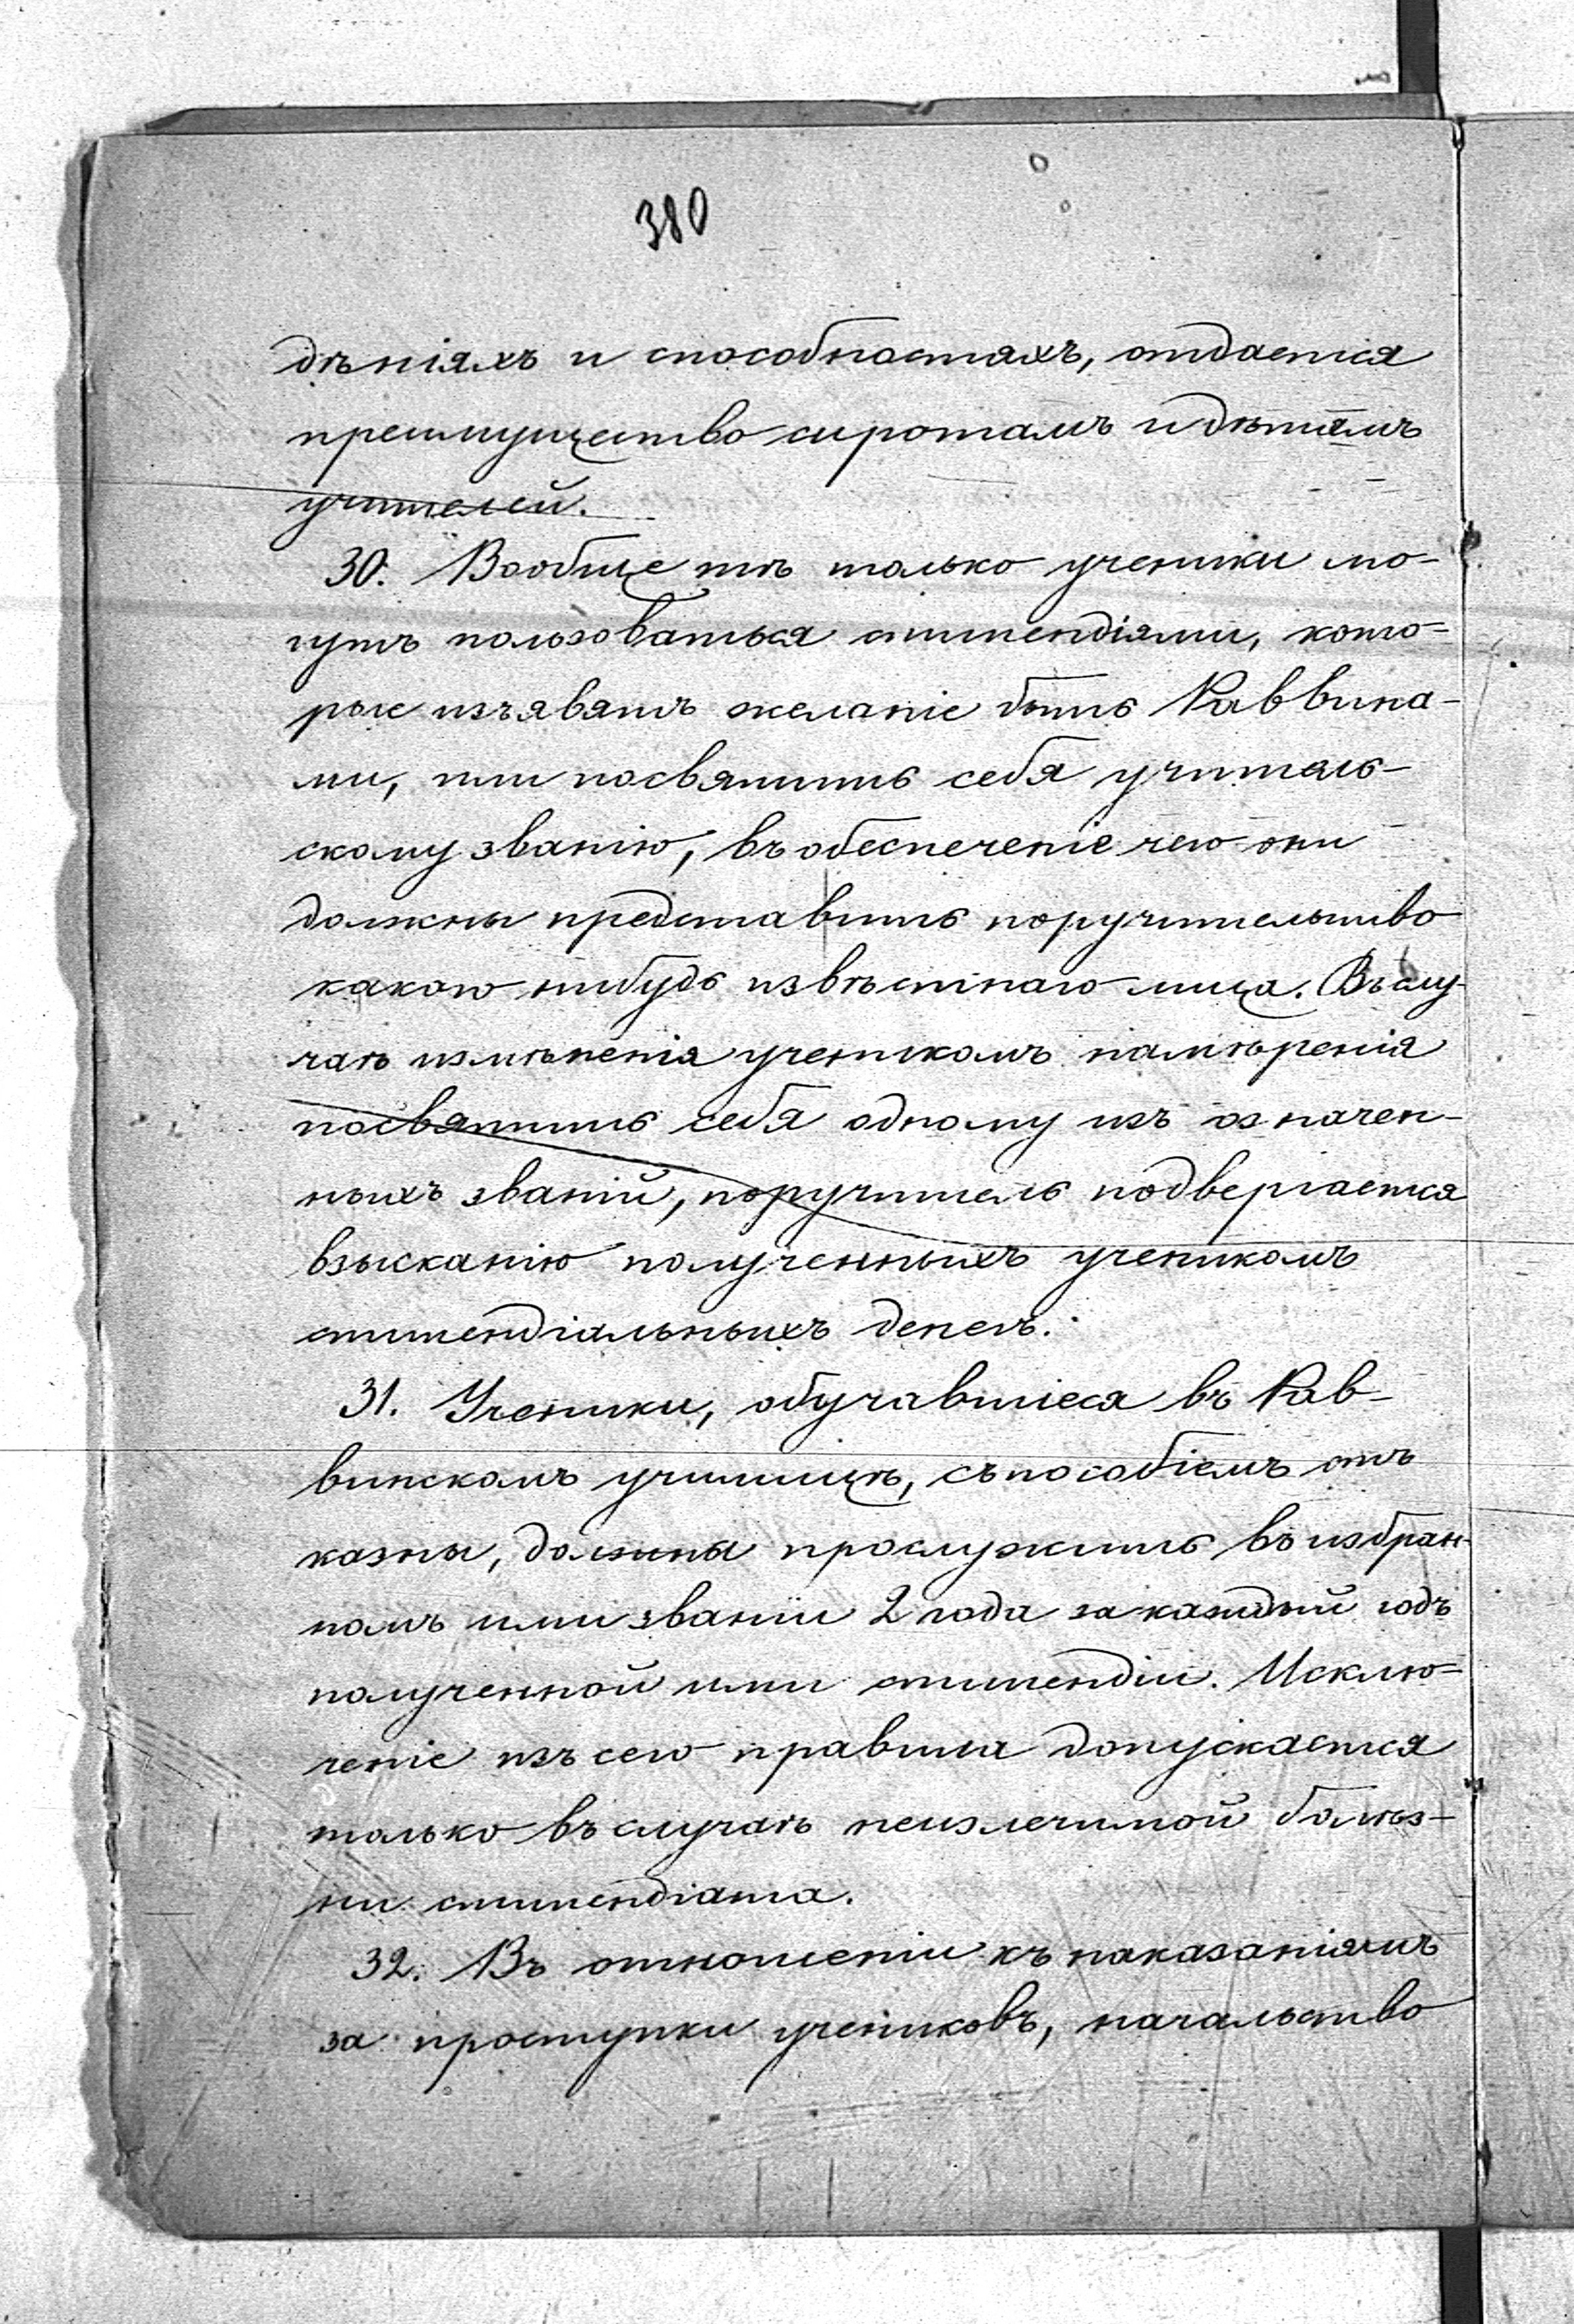 380
дѣніяхъ и способностяхъ, отдается
преимущество сиротамъ и дѣтямъ
учителей.
30. Вообще тѣ только ученики мо-
гутъ пользоваться стипендіями, кото-
рые изъявятъ желаніе быть Раввина-
ми, или посвятить себя учитель-
скому званію, въ обеспеченіе чего они
должны представить поручительство
какого нибудь извѣстнаго лица. Въ слу-
чаѣ измѣненія ученикомъ намѣренія
посвятить себя одному изъ означен-
ныхъ званій, поручитель подвергается
взысканію полученныхъ ученикомъ
стипендіальныхъ денегъ.
31. Ученики, обучавшіеся въ Рав-
винскомъ училищѣ, съ пособіемъ отъ
казны, должны прослужить въ избран-
номъ ими званіи 2 года за каждый годъ
полученной ими стипендіи. Исклю-
ченіе изъ сего правила допускается
только въ случаѣ неизлечимой болѣз-
ни стипендіата.
32. Въ отношеніи къ наказаніямъ
за проступки учениковъ, начальство